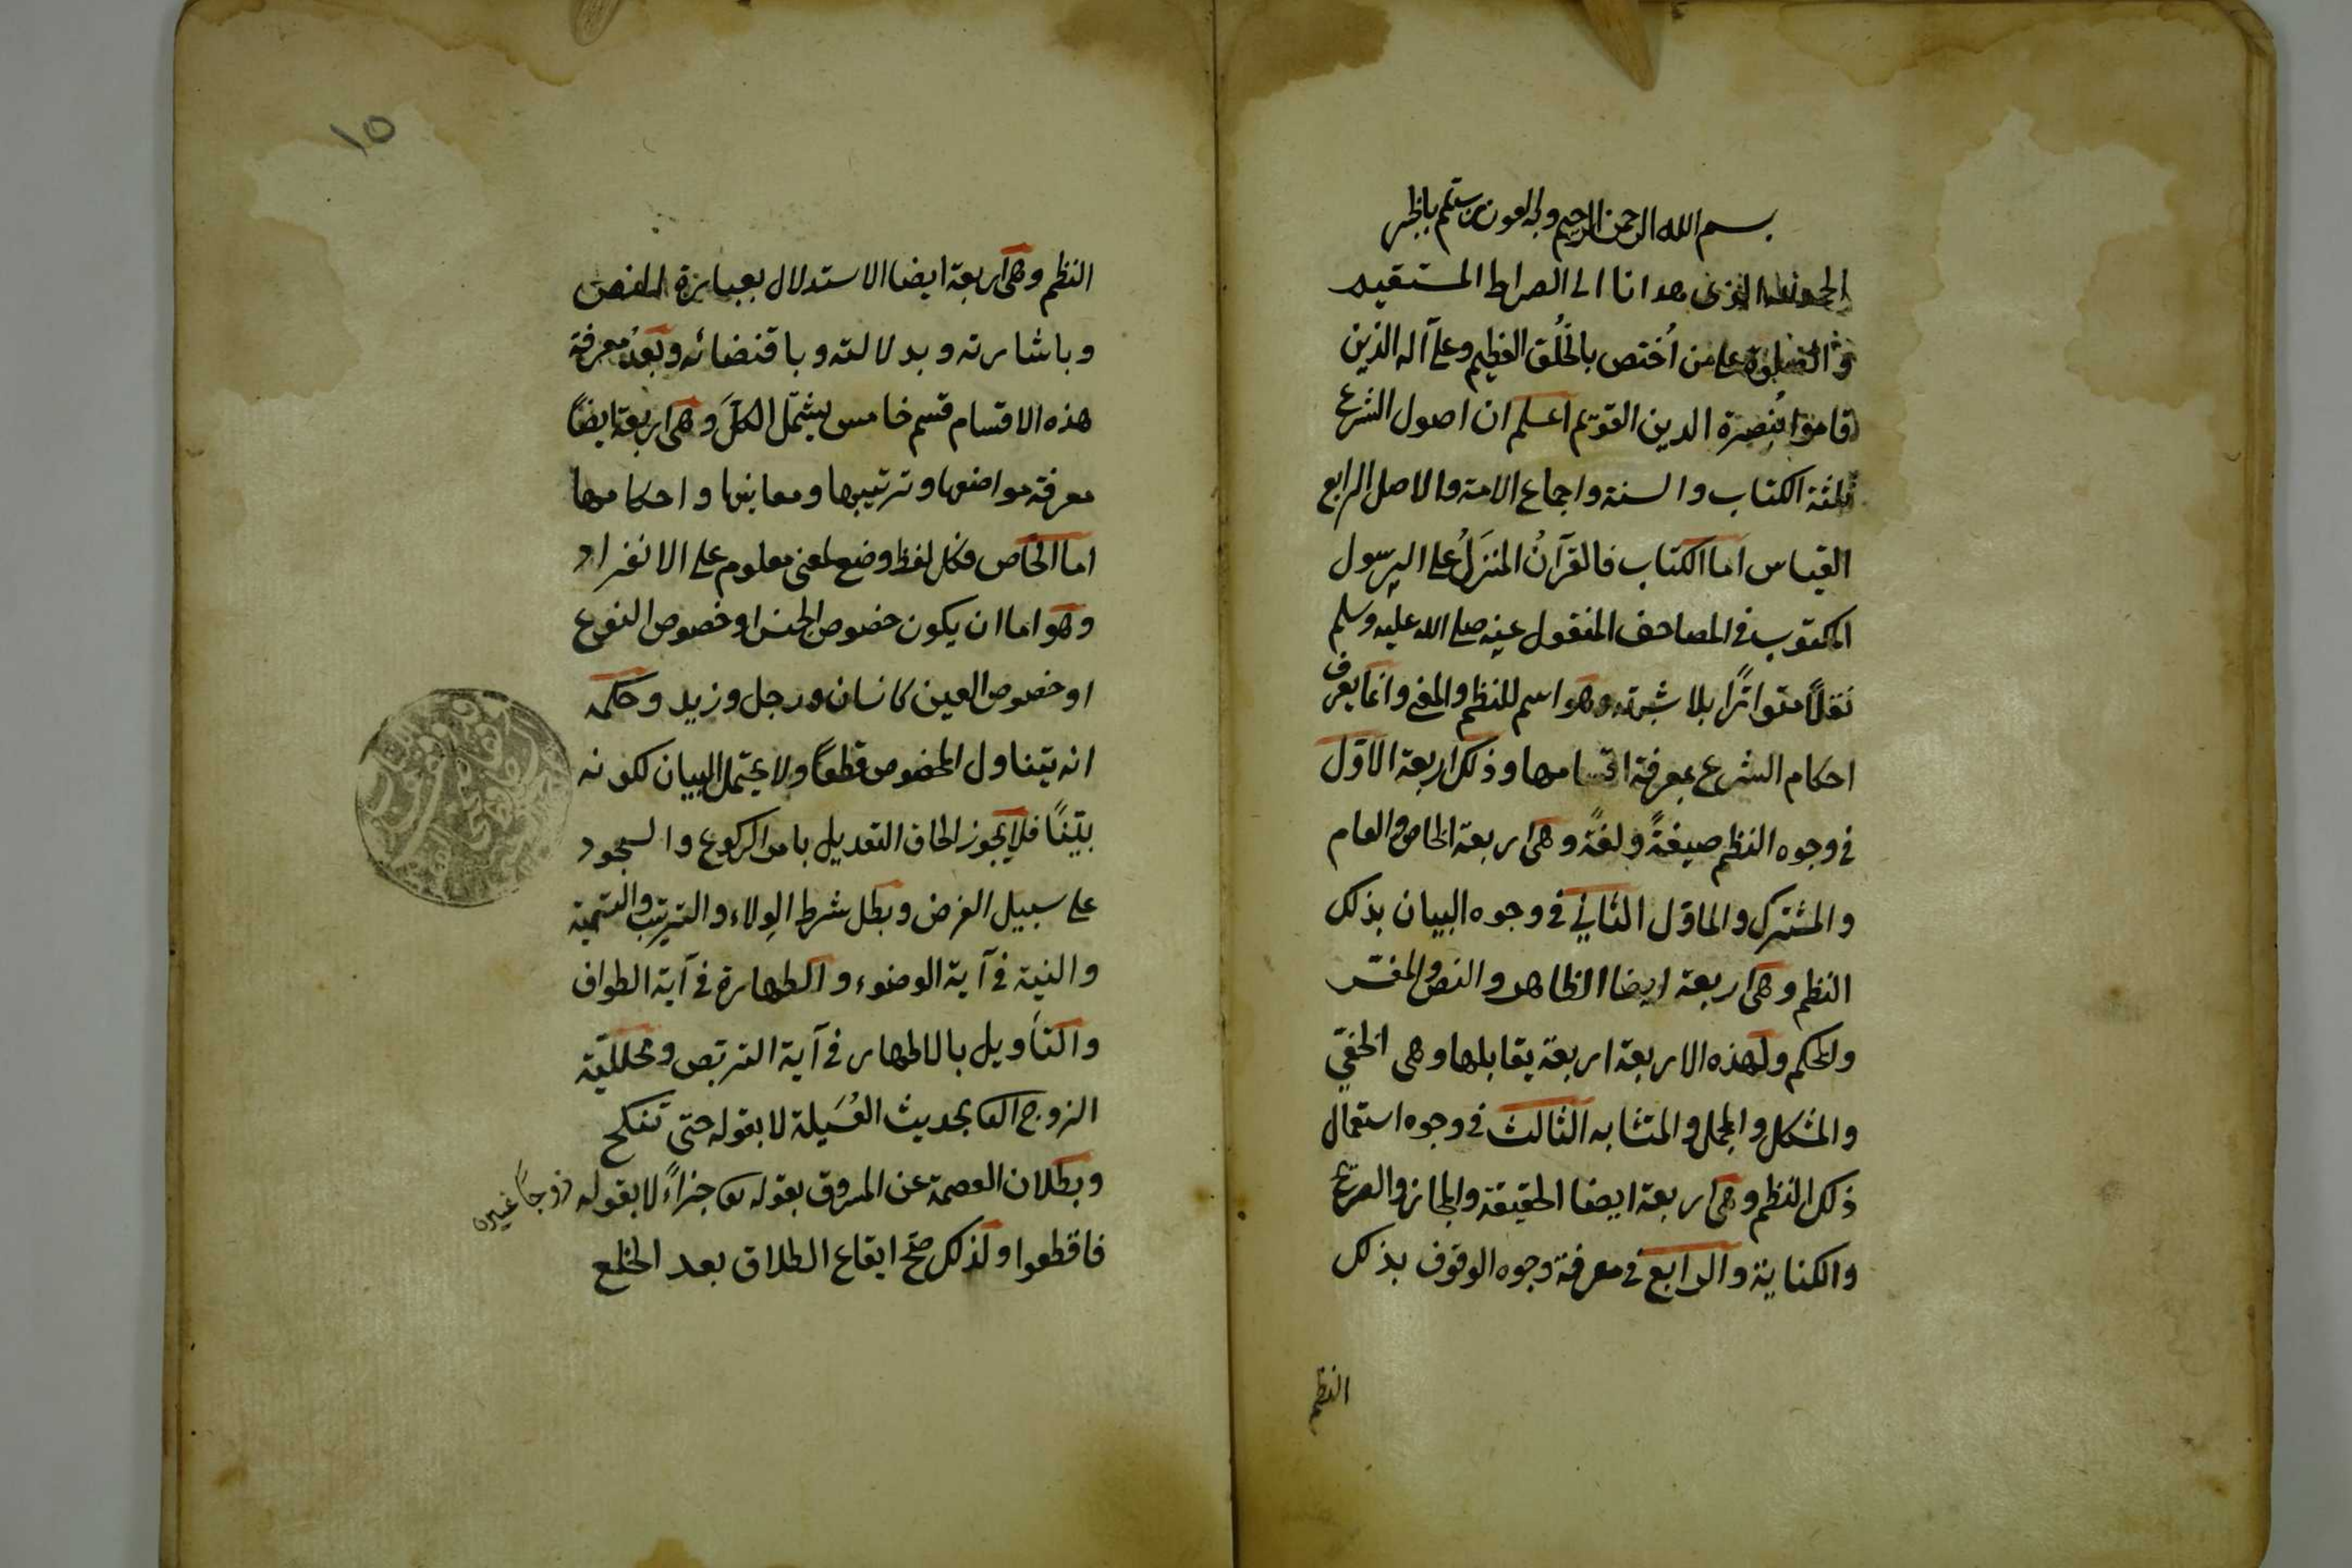 بسم الله الرحمن الرحيم وبه العون تمم بالخير
الحمد لله الذى هدانا الى الصراط المستقيم
والصلوة على من اُختص بالخُلُق العظيم وعلى آله الذين
قاموا بنُصرة الدين القويم اعلم ان اصول الشرع
ثلثة الكتاب والسنة واجماع الامة والاصل الرابع
القياس اما الكتاب فالقرآنُ المنزَلُ على الرسول
المكتوب فى المصاحف المنقول عنه صلى الله عليه وسلم
نقلًا متواترًا بلا شبهة وهو اسم للنظم والمعنى وانما يعرف
احكام الشرع بمعرفة اقسامها وذلك اربعة الاول
فى وجوه النظم صيغةً ولغةً وهى اربعة الخاص والعام
والمشترك والماوّل الثانى فى وجوه البيان بذلك
النظم وهى اربعة ايضا الظاهر والنص والمفسّر
والمحكم ولهذه الاربعة اربعة يقابلها وهى الخفىّ
والمشكل والمجمل والمتشابه الثالث فى وجوه استعمال
ذلك النظم وهى اربعة ايضا الحقيقة والمجاز والصريح
والكناية والرابع فى معرفة وجوه الوقوف بذلك
النظم
١٥
النظم وهى اربعة ايضا الاستدلال بعبارة النص
وباشارته وبدلالته وباقتضائه وبعدُ معرفة
هذه الاقسام قسم خامس يشمل الكلَّ وهى اربعة ايضًا
معرفة مواضعها وترتيبها ومعانيها واحكامها
اما الخاص فكل لفظ وضع لمعنى معلوم على الانفراد
وهو اما ان يكون خصوص الجنس او خصوص النوع
او خصوص العين كانسان ورجل وزيد وحكمه
انه يتناول المخصوص قطعًا ولا يحتمل البيان لكونه
بيّنًا فلا يجوز الحاق التعديل بامر الركوع والسجود
على سبيل الفرض وبطل شرط الوِلاء والترتيب والتسمية
والنية فى آية الوضوء والطهارة فى آية الطواف
والتأويل بالاطهار فى آية التربص ومحللّية
الزوج الثا بحديث العُسَيلة لا بقوله حتى تنكح
زوجًا غيره
وبطلان العصمة عن المسروق بقوله تع جزاءً لا بقوله
فاقطعوا ولذلك صحّ ايقاع الطلاق بعد الخلع